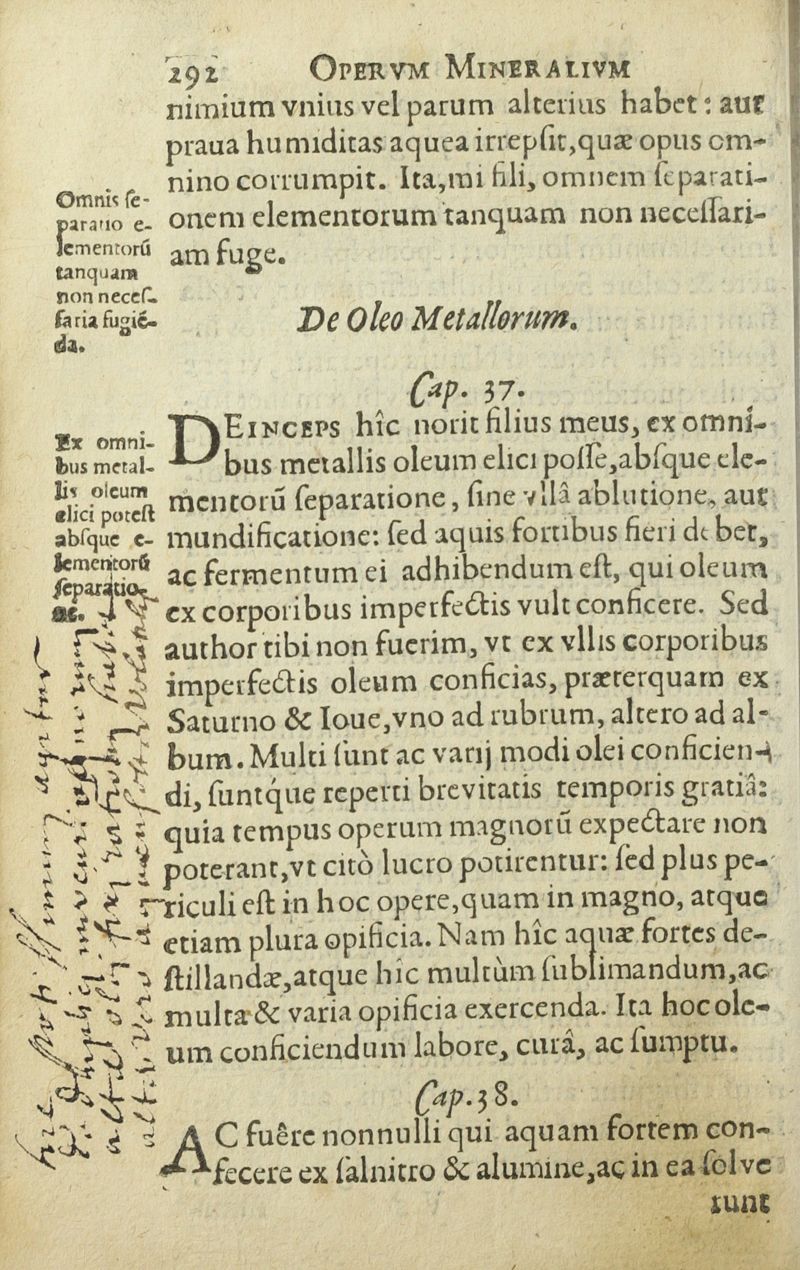 292 OPERVM MINERALIVM
nimium vnius vel parum alterius habet: aut
praua humiditas aquea irrepſit, quæ opus om-
nino corrumpit. Ita, mi fili, omnem ſeparati-
onem elementorum tanquam non neceſſari-
am fuge.
Omnis ſe-
paratio e-
lementorũ
tanquam
non neceſ-
ſaria fugiẽ-
da.
De Oleo Metallorum.
Cap. 37.
DEINCEPS hîc norit filius meus, ex omni-
bus metallis oleum elici poſſe, abſque ele-
mentorũ ſeparatione, ſine vllâ ablutione, aut
mundificatione: ſed aquis fortibus fieri debet,
ac fermentum ei adhibendum eſt, qui oleum
ex corporibus imperfectis vult conficere. Sed
author tibi non fuerim, vt ex vllis corporibus
imperfectis oleum conficias, præterquam ex
Saturno & Ioue, vno ad rubrum, altero ad al-
bum. Multi ſunt ac varij modi olei conficien-
di, ſuntq́ue reperti brevitatis temporis gratiâ:
quia tempus operum magnorũ expectare non
poterant, vt citò lucro potirentur: ſed plus pe-
riculi eſt in hoc opere, quam in magno, atque
etiam plura opificia. Nam hîc aquæ fortes de-
ſtillandæ, atque hîc multùm ſublimandum, ac
multa & varia opificia exercenda. Ita hoc ole-
um conficiendum labore, curâ, ac ſumptu.
Ex omni-
bus metal-
lis oleum
elici poteſt
abſque e-
lementorũ
ſeparatio-
ne.
Cap. 38.
AC fuêre nonnulli qui aquam fortem con-
fecere ex ſalnitro & alumine, ac in ea ſolve
runt